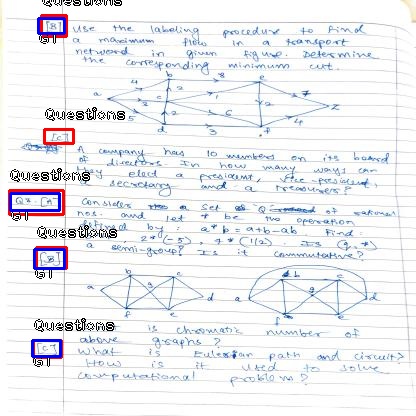 Questions
[B] Use the labeling procedure to find
G1 a maximum flow in a transport
network in given figure. Determine
the corresponding minimum cut.
b 8 e
4 2 7
a 3 c 1 2 z
5 2 6 4
d 3 f
Questions
[C]
A company has 10 members on its board
of directors. In how many ways can
Questions they elect a president, vice-president,
secretary and a treasurer?
Q*. [A] Consider a set Q of rational
G1 nos. and let * be the operation
Questions defined by: a*b = a+b-ab Find:
[B] 2*(-5), 7*(1/2). Is (Q,*)
G1 a semi-group? Is it commutative?
b c b c
a g d a g d
f e f e
Questions
is chromatic number of
above graphs?
[C] What is Eulerian path and circuit?
G1 How is it used to solve
computational problem?